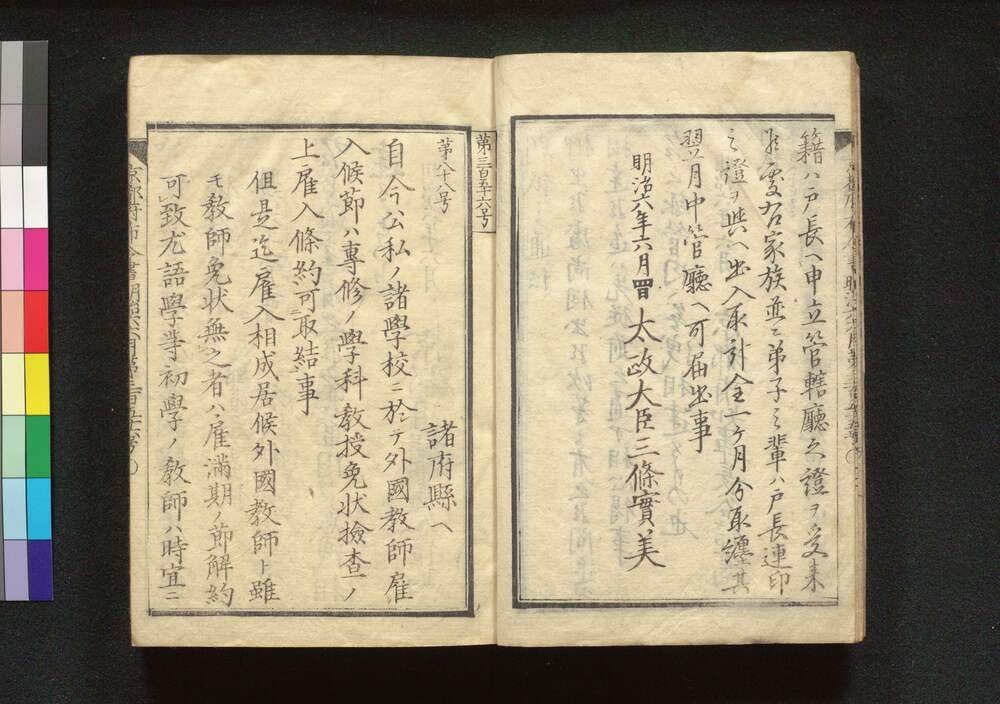 籍ハ戸長ヘ申立管轄廳之證ヲ受来
家族並ニ弟子ミ之輩ハ戸長連印
之證ヲ與ヘ出入取計全一ヶ月分取纏其
翌月中管廳ヘ可届出事
明治六年六月四日 太政大臣三條實美
第三百五十六号
第八十八号
諸府縣ヘ
自今公私ノ諸學校ニ於テ外國教師雇
入候節ハ專修ノ學科教授免状撿查ノ
上雇入條約可取結事
但是迄雇入相成居候外國教師ト雖
モ教師免状無之者ハ雇滿期ノ節解約
可致尤語學等初學ノ教師ハ時宜ニ